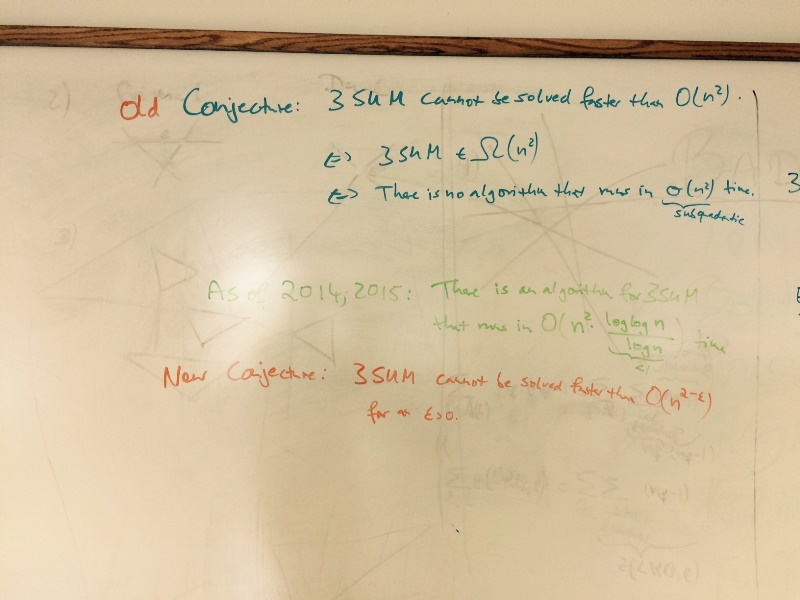 Old Conjecture: 3SUM cannot be solved faster than O(n²).
⇔ 3SUM ∈ Ω(n²)
⇔ There is no algorithm that runs in o(n²) time.
subquadratic
As of 2014, 2015: There is an algorithm for 3SUM
that runs in O(n² · log log n / log n) time
<1
New Conjecture: 3SUM cannot be solved faster than O(n^{2-ε})
for an ε>0.
3